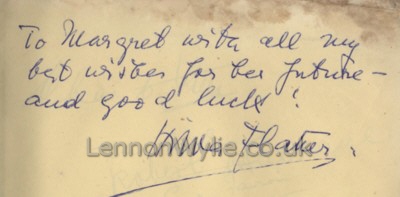 To Margret with all my
best wishes for her future –
and good luck!
LennonWylie.co.uk